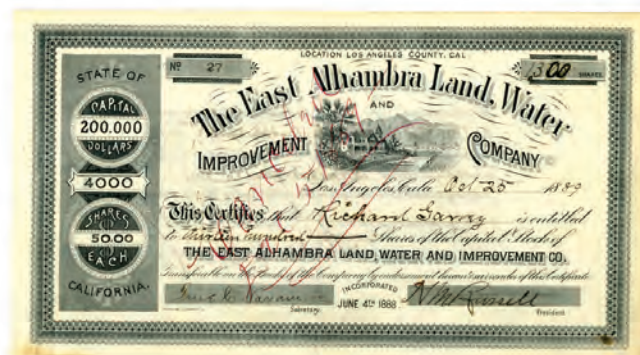 LOCATION LOS ANGELES COUNTY, CAL.
Nº 27
1300 SHARES
STATE OF
CAPITAL
200.000
DOLLARS
4000
SHARES
50.00
EACH
CALIFORNIA.
The East Alhambra Land, Water
AND
IMPROVEMENT COMPANY
Los Angeles, Cala Oct 25 1889
This Certifies that Richard Garvey is entitled
to thirteen hundred Shares of the Capital Stock of
THE EAST ALHAMBRA LAND, WATER AND IMPROVEMENT CO.
Transferable on the Books of the Company by endorsement hereon and surrender of this Certificate
INCORPORATED
JUNE 4TH 1888
Secretary.
President